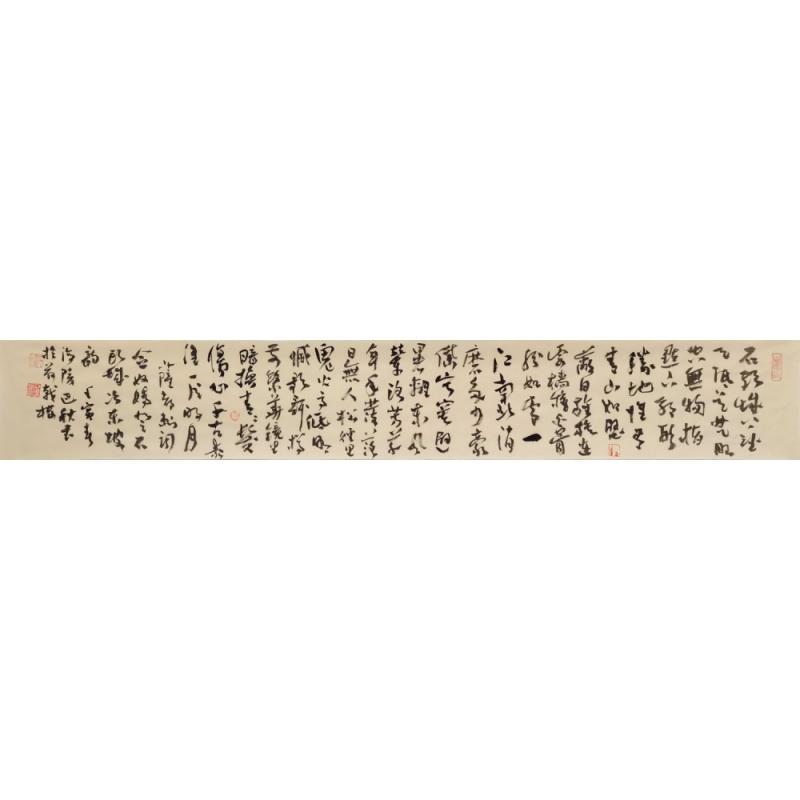 石頭城上望
天低吳楚眼
空無物指
點六朝形
勝地惟有
青山如壁
蔽日旌旗連
雲檣櫓白骨
紛如雪一
江南北消
磨多少豪
傑寂寞避
暑離宮東風
輦路芳草
年年發落
日無人松徑里
鬼火高低明
滅歌舞尊
前繁華鏡里
暗換青青髮
傷心千古秦
淮一片明月
薩都剌詞
念奴嬌登石
頭城次東坡
韻 壬寅春